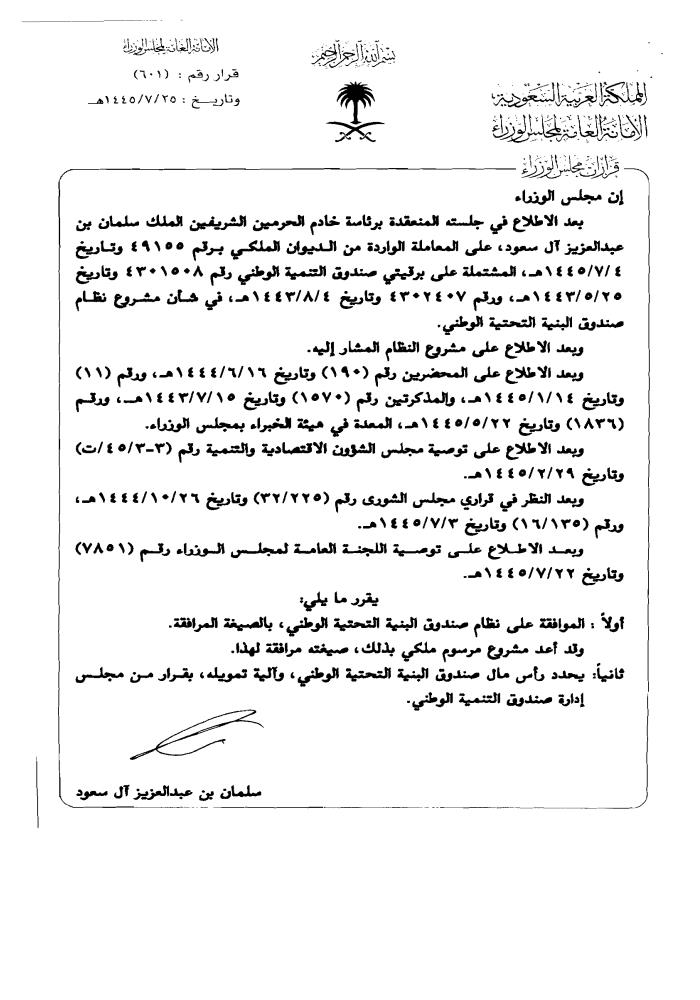 بسم الله الرحمن الرحيم
المملكة العربية السعودية
الأمانة العامة لمجلس الوزراء
الأمانة العامة لمجلس الوزراء
قرار رقم : (٦٠١)
وتاريخ : ١٤٤٥/٧/٢٥هـ
قرارات مجلس الوزراء
إن مجلس الوزراء
بعد الاطلاع في جلسته المنعقدة برئاسة خادم الحرمين الشريفين الملك سلمان بن
عبدالعزيز آل سعود، على المعاملة الواردة من الديوان الملكي برقم ٤٩١٥٥ وتاريخ
١٤٤٥/٧/٤هـ، المشتملة على برقيتي صندوق التنمية الوطني رقم ٤٣٠١٥٠٨ وتاريخ
١٤٤٣/٥/٢٥هـ، ورقم ٤٣٠٢٤٠٧ وتاريخ ١٤٤٣/٨/٤هـ، في شأن مشروع نظام
صندوق البنية التحتية الوطني.
وبعد الاطلاع على مشروع النظام المشار إليه.
وبعد الاطلاع على المحضرين رقم (١٩٠) وتاريخ ١٤٤٤/٦/١٦هـ، ورقم (١١)
وتاريخ ١٤٤٥/١/١٤هـ، والمذكرتين رقم (١٥٧٠) وتاريخ ١٤٤٣/٧/١٥هـ، ورقم
(١٨٣٦) وتاريخ ١٤٤٥/٥/٢٢هـ، المعدة في هيئة الخبراء بمجلس الوزراء.
وبعد الاطلاع على توصية مجلس الشؤون الاقتصادية والتنمية رقم (٣-٤٥/٣/ت)
وتاريخ ١٤٤٥/٢/٢٩هـ.
وبعد النظر في قراري مجلس الشورى رقم (٣٢/٢٢٥) وتاريخ ١٤٤٤/١٠/٢٦هـ،
ورقم (١٦/١٣٥) وتاريخ ١٤٤٥/٧/٣هـ.
وبعد الاطلاع على توصية اللجنة العامة لمجلس الوزراء رقم (٧٨٥١)
وتاريخ ١٤٤٥/٧/٢٢هـ.
يقرر ما يلي:
أولاً : الموافقة على نظام صندوق البنية التحتية الوطني، بالصيغة المرافقة.
وقد أعد مشروع مرسوم ملكي بذلك، صيغته مرافقة لهذا.
ثانياً: يحدد رأس مال صندوق البنية التحتية الوطني، وآلية تمويله، بقرار من مجلس
إدارة صندوق التنمية الوطني.
سلمان بن عبدالعزيز آل سعود